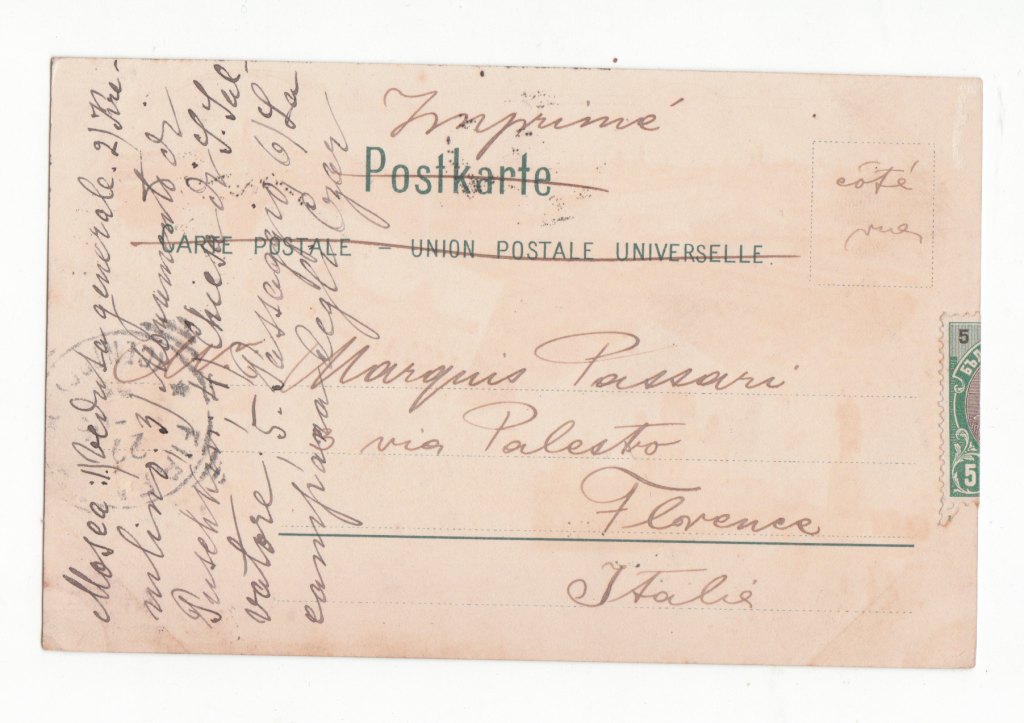 Imprimé
Postkarte
CARTE POSTALE – UNION POSTALE UNIVERSELLE.
côté
vue
Mr Marquis Passari
via Palestro
Florence
Italie
Mosca: 1) veduta generale. 2) Kre-
mlino 3) Monumento di
Puschkin 4 Chiesa di S. Sal-
vatore. 5. Passagio 6) La
campana degli Czar
5
БЪЛ
5